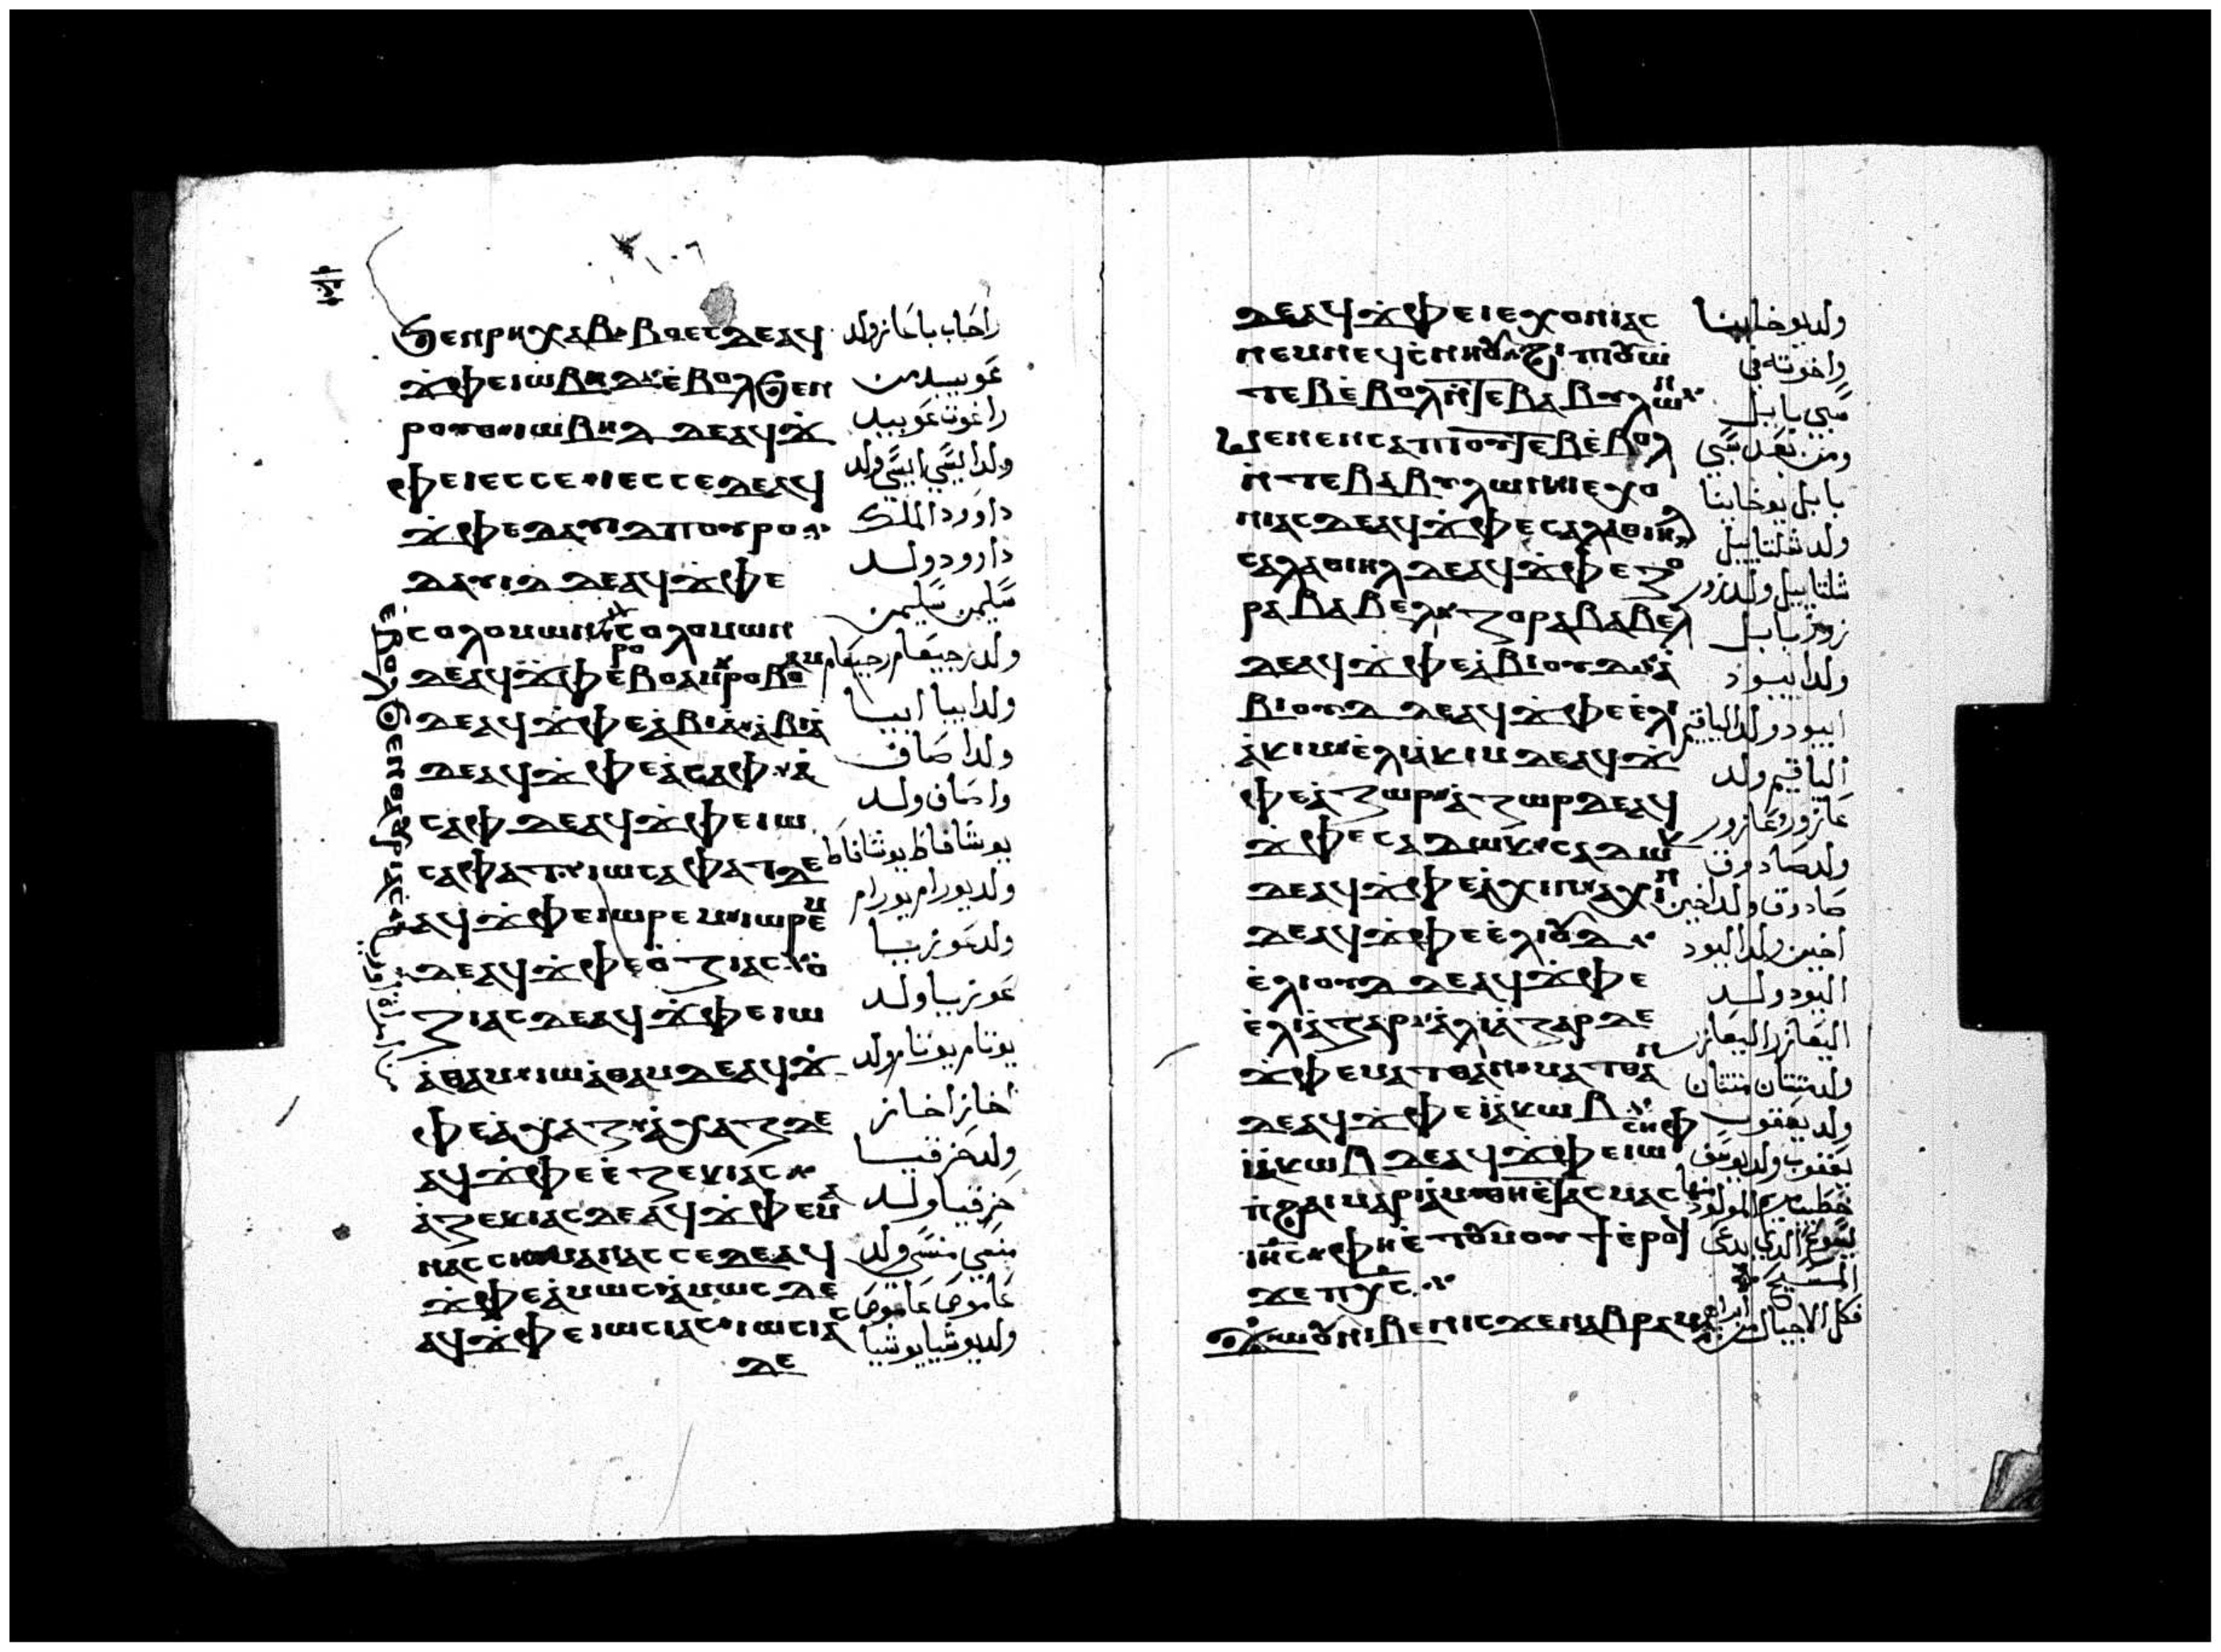 ϧⲉⲛⲣⲏⲭⲁⲃ ⲃⲟⲉⲥ ⲇⲉ ⲁϥ
ϫⲫⲉ ⲓⲱⲃⲏⲇ ⲉⲃⲟⲗϧⲉⲛ
ⲣⲟⲩⲑ ⲓⲱⲃⲏⲇ ⲇⲉ ⲁϥϫ
ⲫⲉ ⲓⲉⲥⲥⲉ ⲓⲉⲥⲥⲉ ⲇⲉ ⲁϥ
ϫⲫⲉ ⲇⲁⲩⲓⲇ ⲡⲟⲩⲣⲟ
ⲇⲁⲩⲓⲇ ⲇⲉ ⲁϥϫⲫⲉ
ⲥⲟⲗⲟⲙⲱⲛ ⲥⲟⲗⲟⲙⲱⲛ
ⲇⲉ ⲁϥϫⲫⲉ
ⲇⲉ ⲁϥϫⲫⲉ ⲁⲃⲓⲁ ⲁⲃⲓⲁ
ⲇⲉ ⲁϥϫⲫⲉ ⲁⲥⲁⲫ ⲁ
ⲥⲁⲫ ⲇⲉ ⲁϥϫⲫⲉ ⲓⲱ
ⲥⲁⲫⲁⲧ ⲓⲱⲥⲁⲫⲁⲧ ⲇⲉ
ⲁϥϫⲫⲉ ⲓⲱⲣⲉⲙ ⲓⲱⲣⲉⲙ
ⲇⲉ ⲁϥϫⲫⲉ ⲟⲍⲓⲁⲥ ⲟ
ⲍⲓⲁⲥ ⲇⲉ ⲁϥϫⲫⲉ ⲓⲱ
ⲁⲑⲁⲙ ⲓⲱⲁⲑⲁⲙ ⲇⲉ ⲁϥϫ
ⲫⲉ ⲁⲭⲁⲍ ⲁⲭⲁⲍ ⲇⲉ
ⲁϥϫⲫⲉ ⲉⲍⲉⲕⲓⲁⲥ
ⲁⲍⲉⲕⲓⲁⲥ ⲇⲉ ⲁϥϫⲫⲉ ⲙⲁ
ⲛⲁⲥⲥⲏ ⲙⲁⲛⲁⲥⲥⲉ ⲇⲉ ⲁϥ
ϫⲫⲉ ⲁⲙⲱⲥ ⲁⲙⲱⲥ ⲇⲉ
ⲁϥϫⲫⲉ ⲓⲱⲥⲓⲁⲥ ⲓⲱⲥⲓⲁⲥ
ⲇⲉ
راحاب باعاز ولد
عوبيد من
راغوث عوبيد
ولد ايسي ايسي ولد
داوود الملك
داوود ولد
سليمن سليمن
ولد رحبعام رحبعام
ولد ابيا ابيا
ولد اصاف
واصاف ولد
يوشافاط يوشافاط
ولد يورام يورام
ولد عوزيا
عوزيا ولد
يوثام يوثام ولد
اخاز اخاز
ولد حزقيا
حزقيا ولد
منسي منسي ولد
عاموص عاموص
ولد يوشيا يوشيا
ⲇⲉ ⲁϥϫⲫⲉ ⲓⲉⲭⲟⲛⲓⲁⲥ
ⲛⲉⲙ ⲛⲉϥⲥⲛⲏⲟⲩ ϩⲓ ⲡⲟⲩⲱ
ⲧⲉⲃ ⲉⲃⲟⲗ ⲛⲧⲉ ⲃⲁⲃⲩⲗⲱⲛ
ⲙⲉⲛⲉⲛⲥⲁ ⲡⲓⲟⲩⲱⲧⲉⲃ ⲉⲃⲟⲗ
ⲛⲧⲉ ⲃⲁⲃⲩⲗⲱⲛ ⲓⲉⲭⲟ
ⲛⲓⲁⲥ ⲇⲉ ⲁϥϫⲫⲉ ⲥⲁⲗⲁⲑⲓⲏⲗ
ⲥⲁⲗⲁⲑⲓⲏⲗ ⲇⲉ ⲁϥϫⲫⲉ ⲍⲟ
ⲣⲁⲃⲁⲃⲉⲗ ⲍⲟⲣⲁⲃⲁⲃⲉⲗ
ⲇⲉ ⲁϥϫⲫⲉ ⲁⲃⲓⲟⲩⲇ ⲁ
ⲃⲓⲟⲩⲇ ⲇⲉ ⲁϥϫⲫⲉ ⲉⲗⲓ
ⲁⲕⲓⲙ ⲉⲗⲓⲁⲕⲓⲙ ⲇⲉ ⲁϥϫ
ⲫⲉ ⲁⲍⲱⲣ ⲁⲍⲱⲣ ⲇⲉ ⲁϥ
ϫⲫⲉ ⲥⲁⲇⲱⲕ ⲥⲁⲇⲱⲕ
ⲇⲉ ⲁϥϫⲫⲉ ⲁⲭⲓⲛ ⲁⲭⲓⲛ
ⲇⲉ ⲁϥϫⲫⲉ ⲉⲗⲓⲟⲩⲇ
ⲉⲗⲓⲟⲩⲇ ⲇⲉ ⲁϥϫⲫⲉ
ⲉⲗⲓⲁⲍⲁⲣ ⲁⲗⲓⲁⲍⲁⲣ ⲇⲉ
ϫⲫⲉ ⲙⲁⲧⲑⲁⲛ ⲙⲁⲧⲑⲁⲛ
ⲇⲉ ⲁϥϫⲫⲉ ⲓⲁⲕⲱⲃ
ⲓⲁⲕⲱⲃ ⲇⲉ ⲁϥϫⲫⲉ ⲓⲱⲥⲏⲫ
ⲡϩⲁⲓ ⲙⲙⲁⲣⲓⲁⲙ ⲑⲏⲉⲧⲁⲥⲙⲁⲥ
ⲓⲏⲥ ⲫⲏⲉⲧⲟⲩⲙⲟⲩϯ ⲉⲣⲟϥ
ϫⲉ ⲡⲭⲥ
ϫⲱⲟⲩ ⲛⲓⲃⲉⲛ ⲓⲥϫⲉⲛ ⲁⲃⲣⲁⲁⲙ
ولد يوخانيا
واخوته في
سبي بابل
ومن بعد سبي
بابل يوخانيا
ولد شلتاييل
شلتاييل ولد زور
زوربابل
ولد ابيود
ابيود ولد الياقيم
الياقيم ولد
عازور وعازور
ولد صادوق
صادوق ولد اخين
اخين ولد اليود
اليود ولد
اليعازر اليعازر
ولد متثان متثان
ولد يعقوب
يعقوب ولد يوسف
خطيب مريم المولود منها
يسوع الذي يدعى
المسيح
فكل الاجيال من ابراهيم